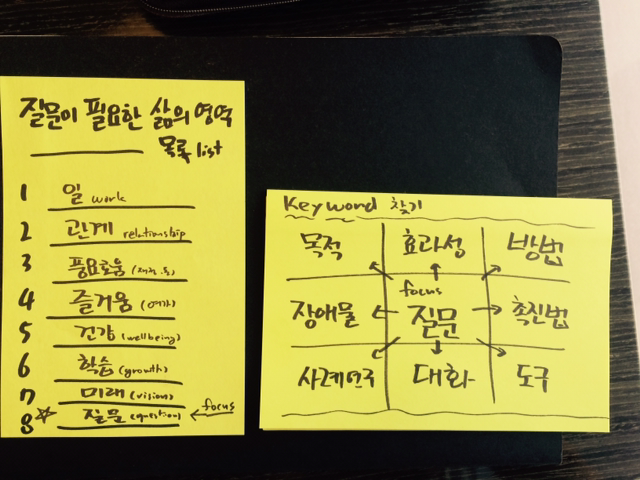 질문이 필요한 삶의 영역
목록 list
1 일 work
2 관계 relationship
3 풍요로움
4 즐거움 (여가)
5 건강 (wellbeing)
6 학습 (growth)
7 미래 (vision)
8 질문 (question) ← focus
Keyword 찾기
목적 효과성 방법
focus
장애물 질문 촉진법
사례연구 대화 도구